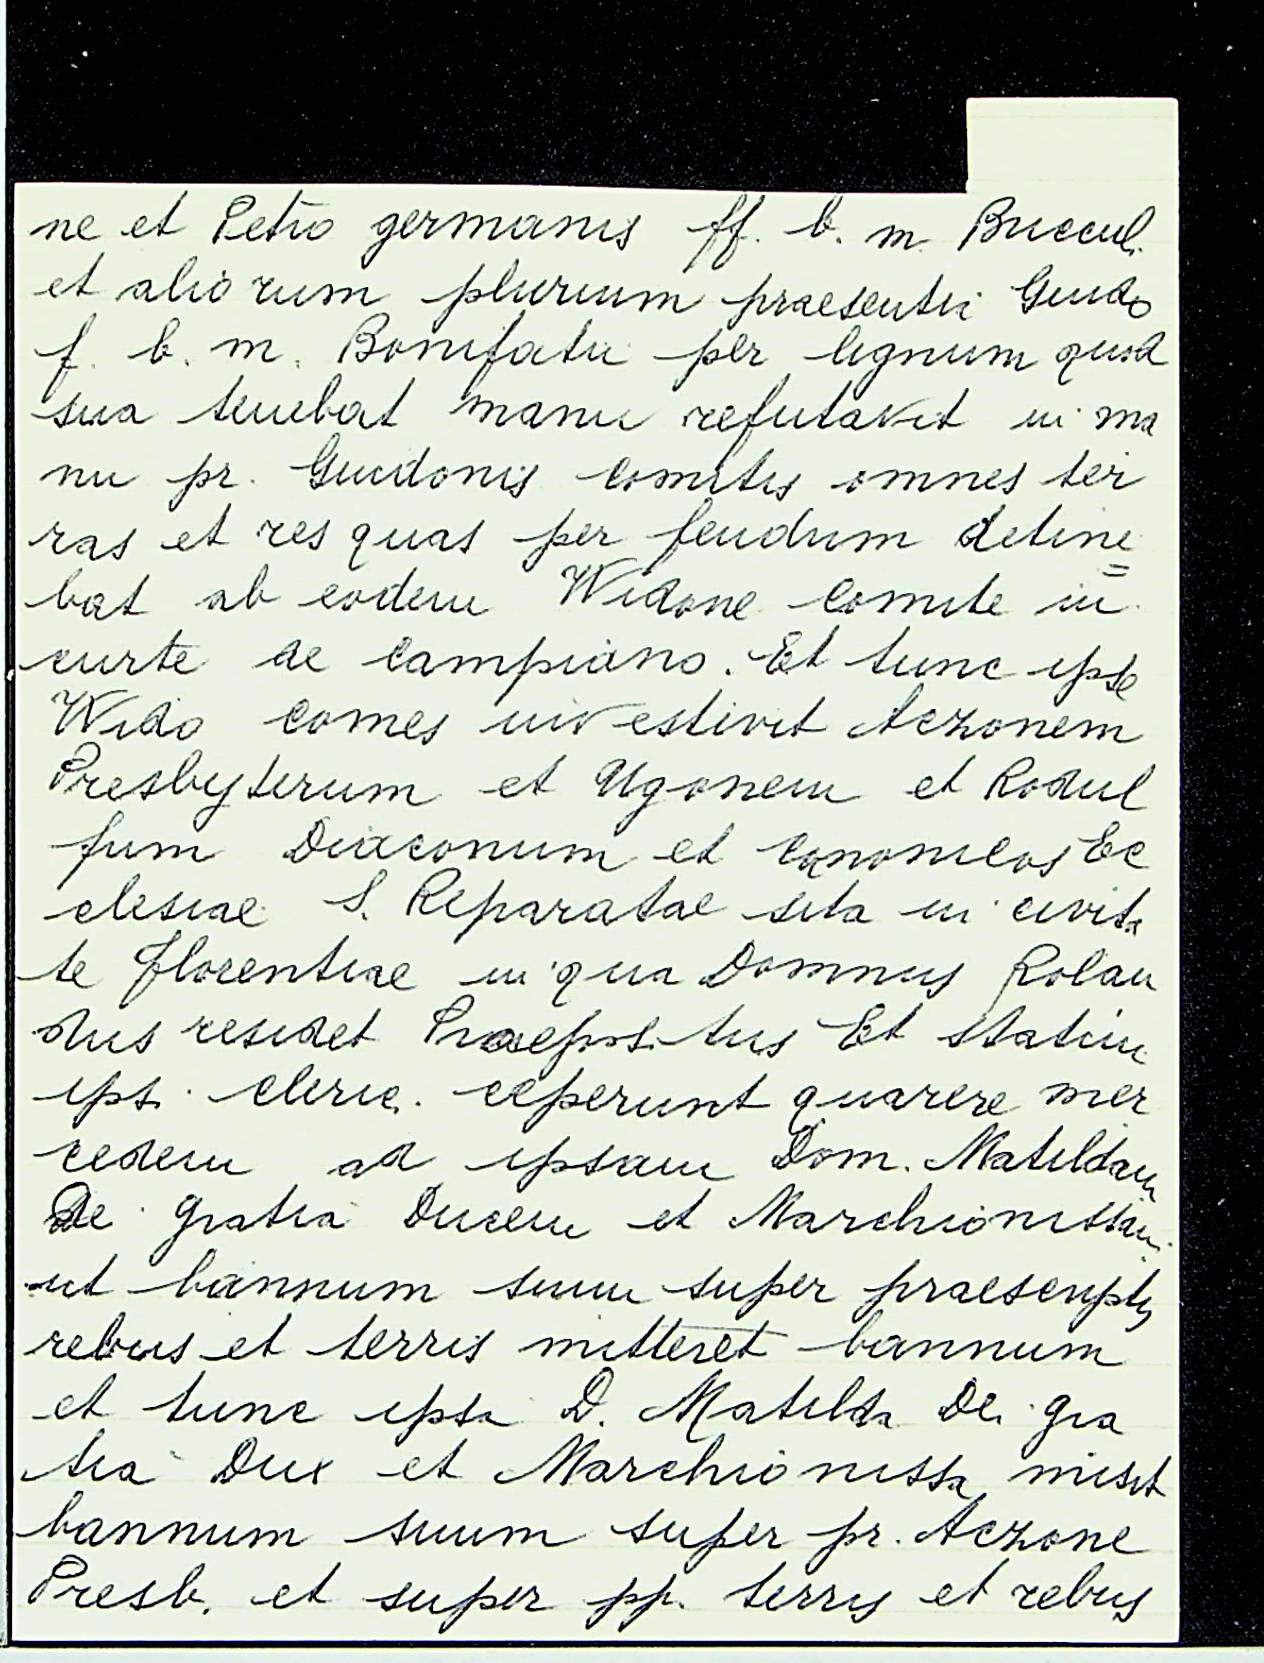 ne et Petro germanis ff. b. m. Buccul.
et aliorum plurium praesentia Guido
f. b. m. Bonifatii per lignum quod
sua tenebat manu refutavit in ma
nu pr. Guidonis comitis omnes ter
ras et res quas per feudum detine
bat ab eodem Widone comite in
curte de Campiano. Et tunc ipse
Wido comes investivit Aczonem
Presbyterum et Ugonem et Rodul
fum Diaconum et Canonicos Ec
clesiae S. Reparatae sita in civita
te Florentiae in qua Domnus Rolan
dus residet Praepositus Et statim
ips. cleric. ceperunt quarere mer
cedem ad ipsam Dom. Matildam
Dei gratia Ducem et Marchionissam
ut bannum suum super praescriptis
rebus et terris mitteret bannum
et tunc ipsa D. Matilda Dei gra
tia Dux et Marchionissa misit
bannum suum super pr. Aczone
Presb. et super pp. terris et rebus